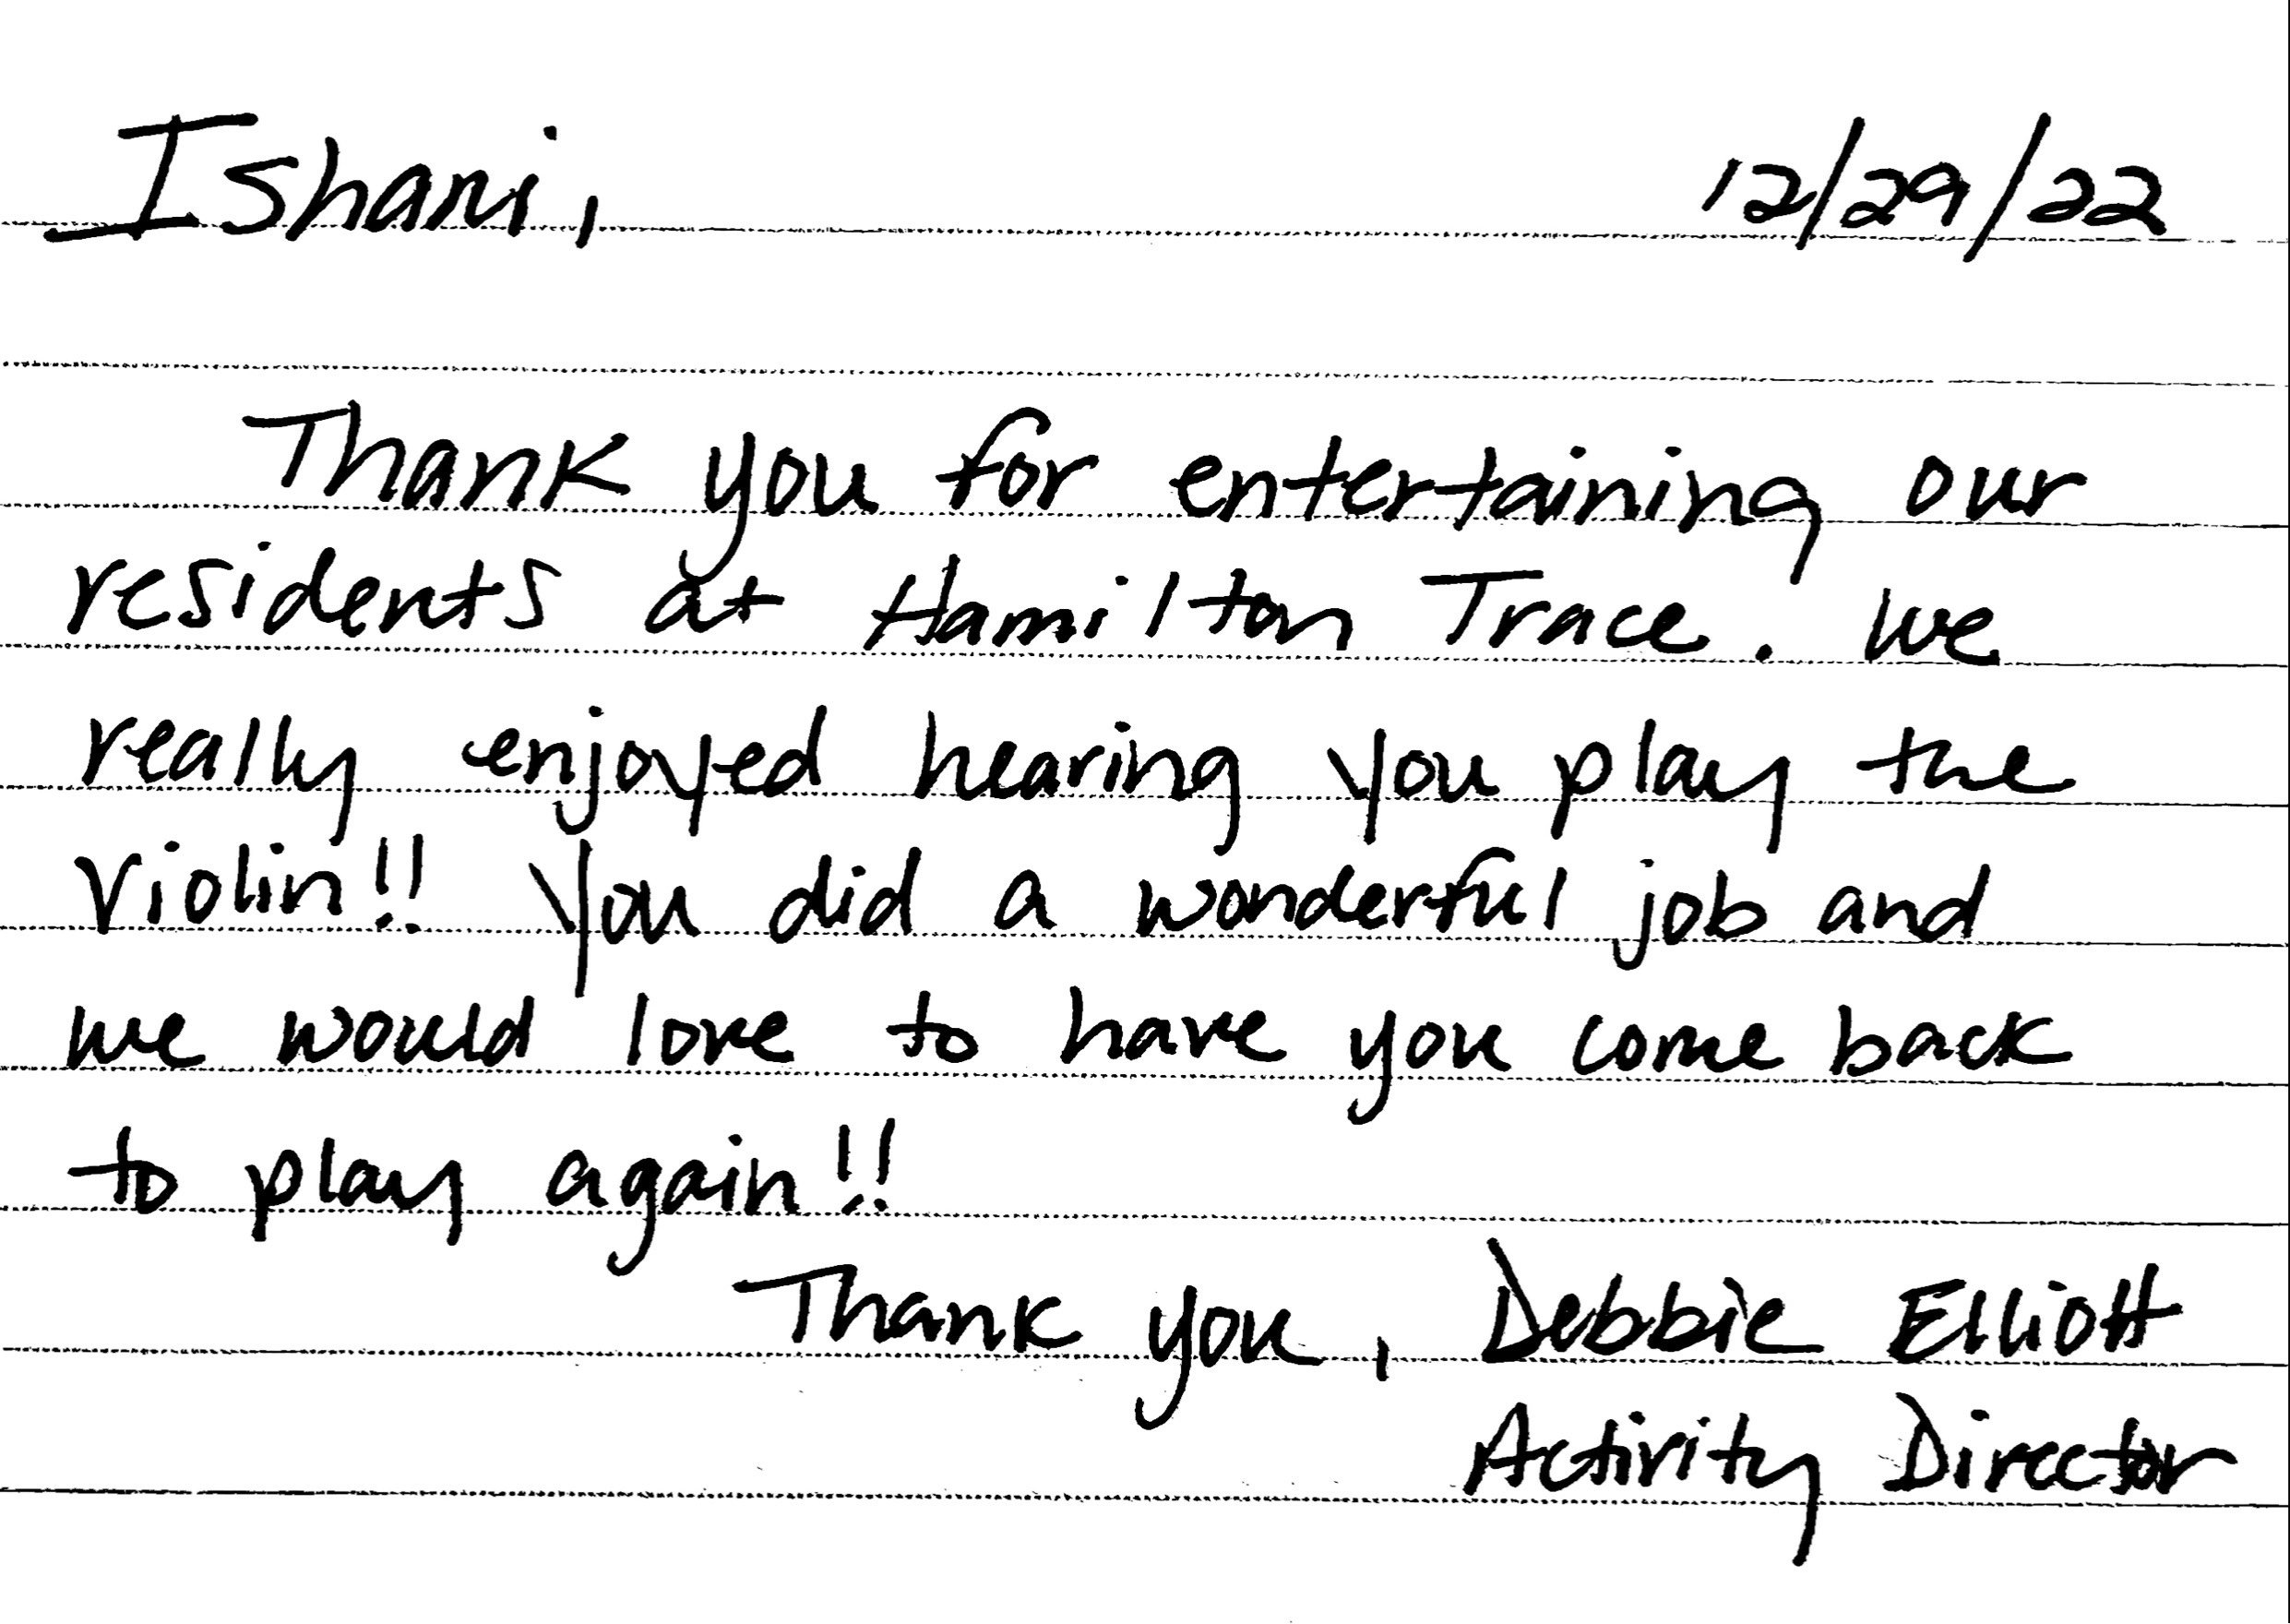 Ishani, 12/29/22
Thank you for entertaining our
residents at Hamilton Trace. We
really enjoyed hearing you play the
violin!! You did a wonderful job and
we would love to have you come back
to play again!!
Thank you, Debbie Elliott
Activity Director